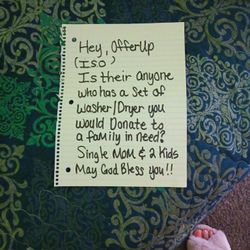 Hey, OfferUp
(ISO)
Is their anyone
who has a set of
washer/Dryer you
would Donate to
a family in need?
Single Mom & 2 Kids
May God Bless you!!